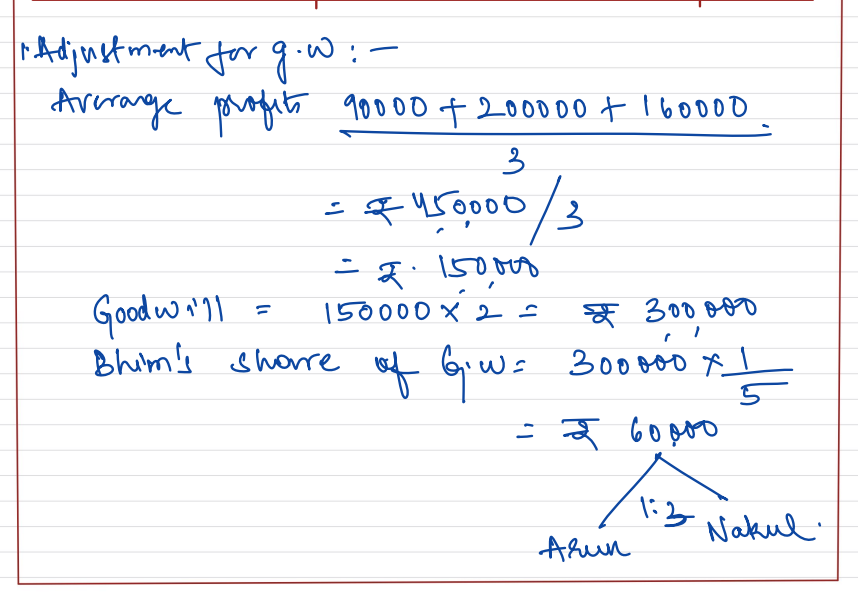 1. Adjustment for g.w : —
Average profits 90000 + 200000 + 160000
3
= ₹ 450000 / 3
= ₹. 150,000
Goodwill = 150000 × 2 = ₹ 300,000
Bhim's share of G.w = 300000 × 1
5
= ₹ 60,000
1:3
Arun Nakul.